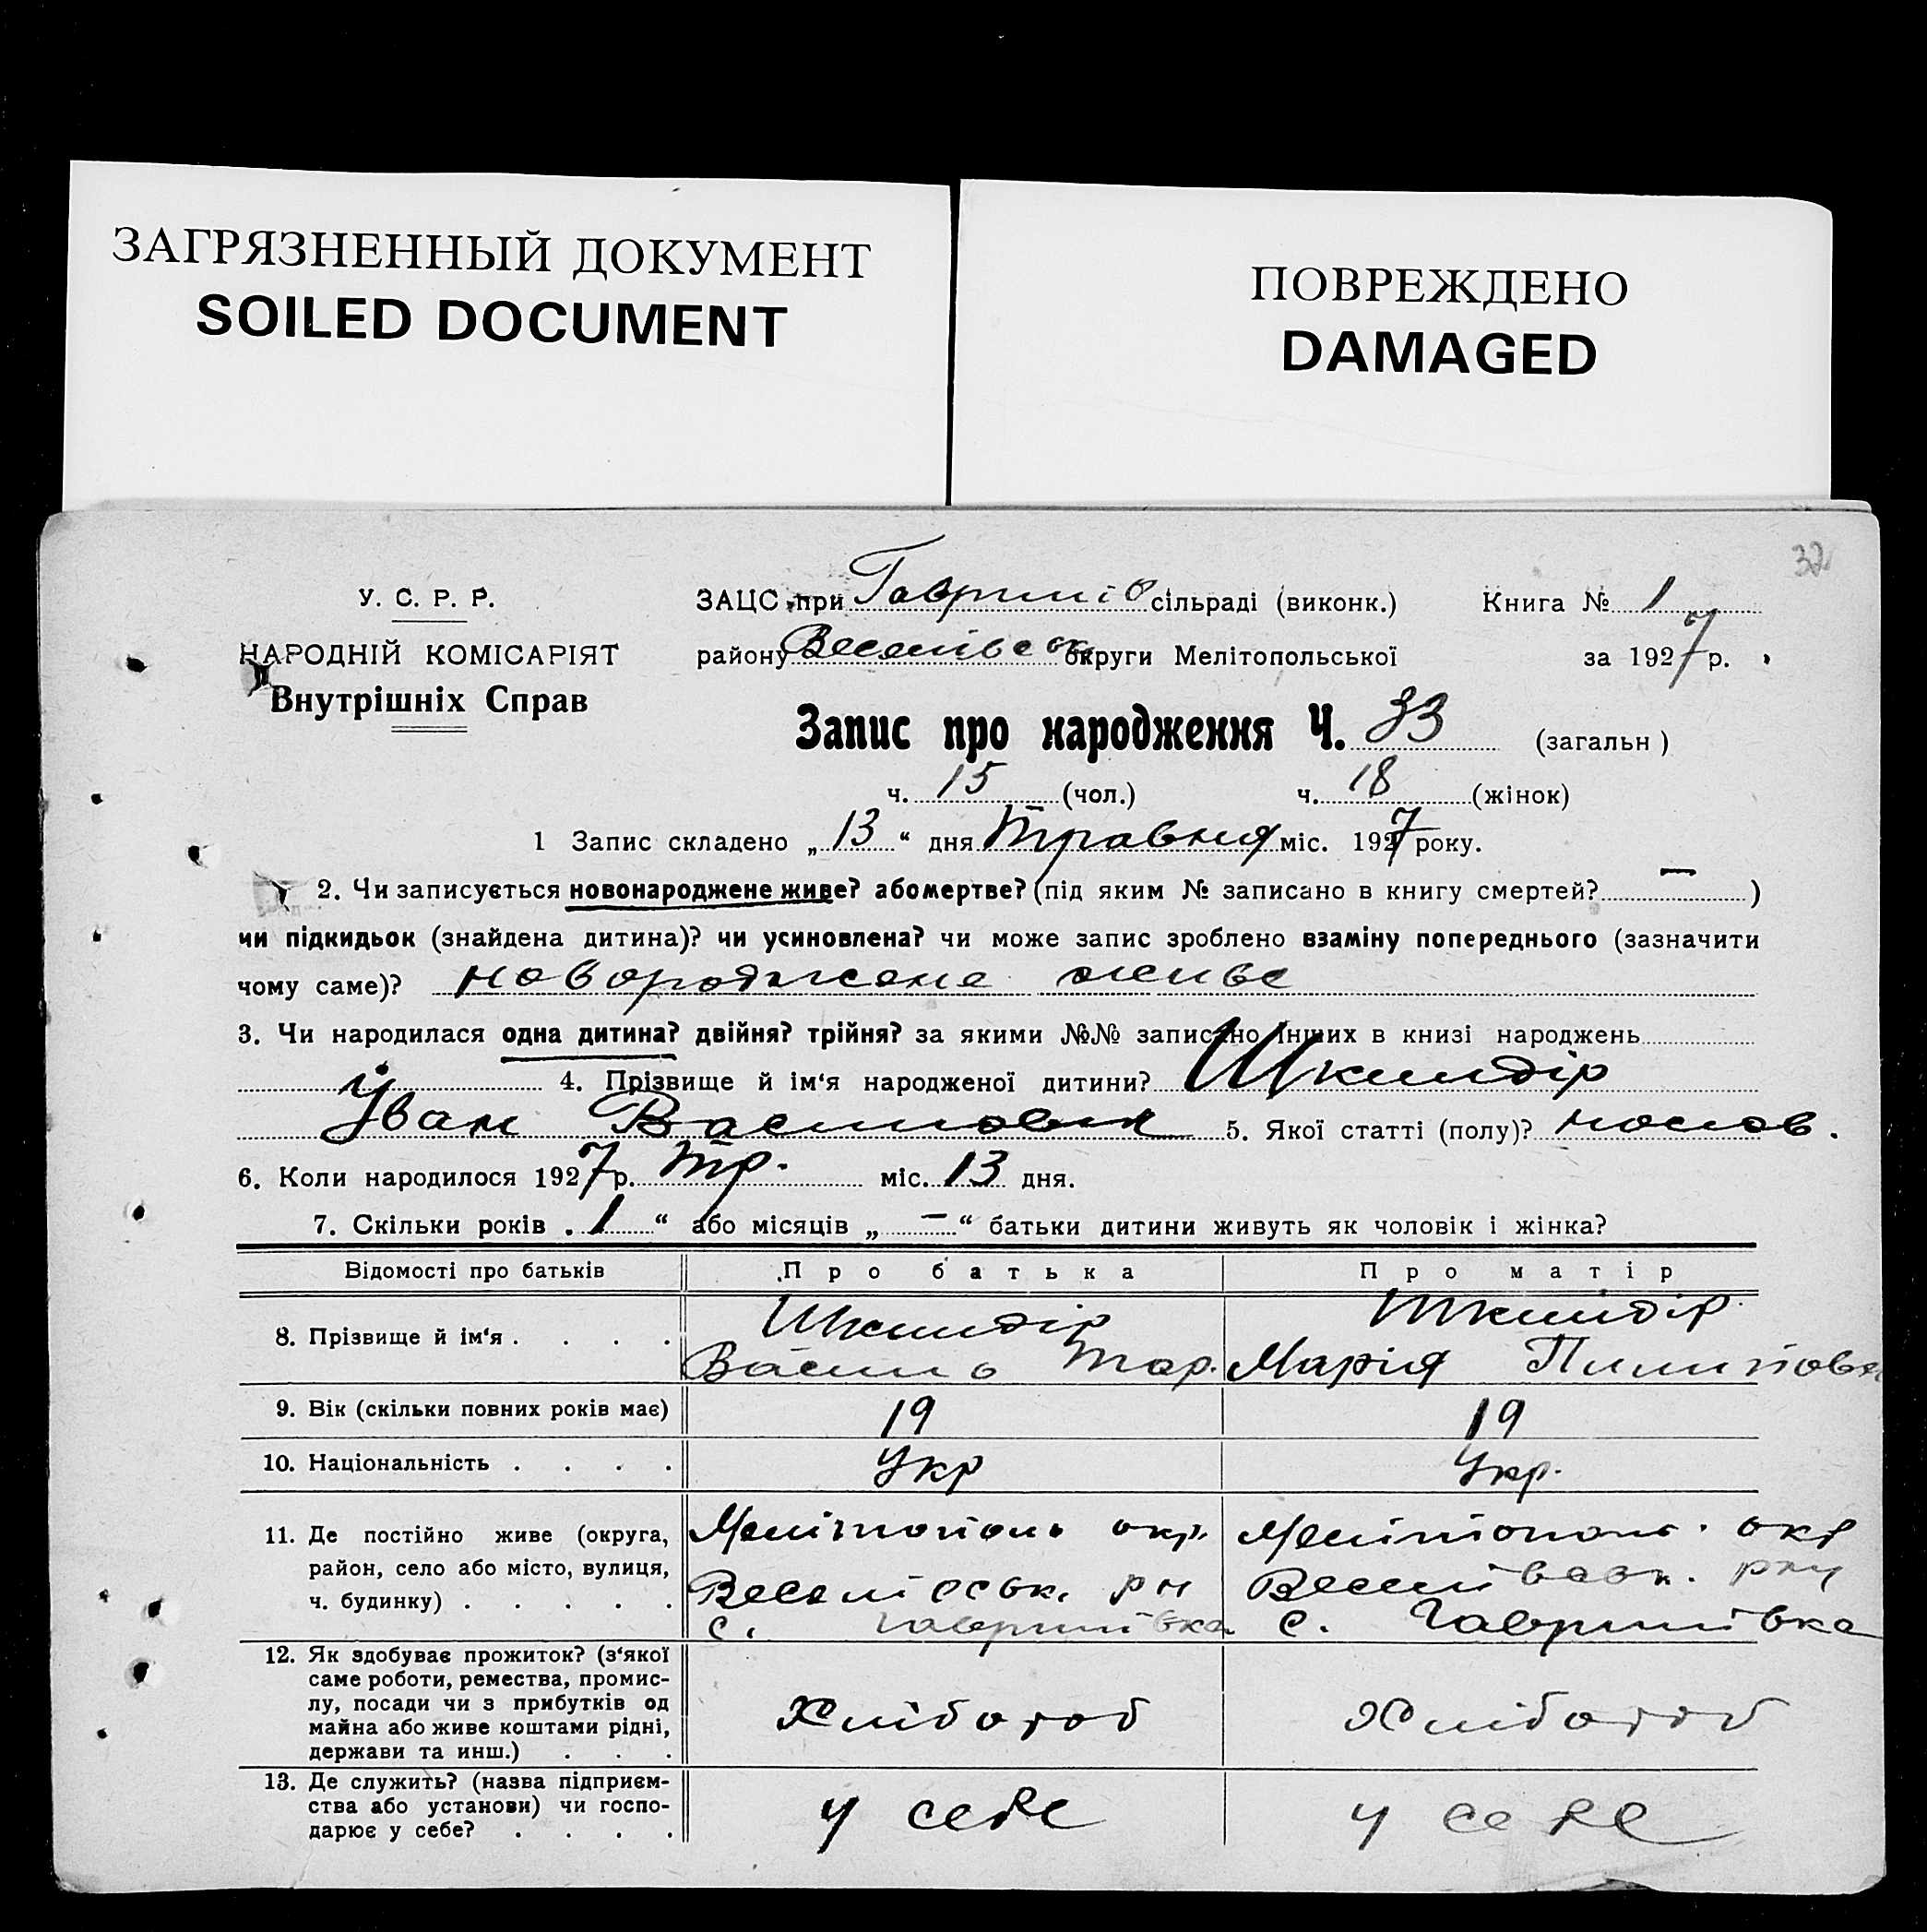 ЗАГРЯЗНЕННЫЙ ДОКУМЕНТ
SOILED DOCUMENT
ПОВРЕЖДЕНО
DAMAGED
32
У. С. Р. Р.
НАРОДНІЙ КОМІСАРІЯТ
Внутрішніх Справ
ЗАЦС при Гаврилів сільраді (виконк.) Книга № 1
району Веселівськ округи Мелітопольської за 1927 р.
Запис про народження Ч. 33 (загальн)
ч. 15 (чол.) ч. 18 (жінок)
1 Запис складено „ 13 “ дня Травня міс. 1927 року.
2. Чи записується новонароджене живе? або мертве? (під яким № записано в книгу смертей? — )
чи підкидьок (знайдена дитина)? чи усиновлена? чи може запис зроблено взаміну попереднього (зазначити
чому саме)? новорождене живе
3. Чи народилася одна дитина? двійня? трійня? за якими №№ записано інших в книзі народжень
4. Прізвище й ім‘я народженої дитини? Шкиндір
Іван Васильович 5. Якої статті (полу)? чолов.
6. Коли народилося 1927 р. тр. міс. 13 дня.
7. Скільки років „ 1 “ або місяців „ — “ батьки дитини живуть як чоловік і жінка?
Відомості про батьків Про батька Про матір
8. Прізвище й ім‘я . . . . Шкиндір Шкиндір
Василь Мар. Марія Пилиповн
9. Вік (скільки повних років має) 19 19
10. Національність . . . . Укр Укр.
11. Де постійно живе (округа, район, село або місто, вулиця, ч. будинку) . . . . .
Мелітополь окр. Мелітополь. окр
Веселівськ. рн Веселівськ. рну
с. Гаврилівка с. Гаврилівка
12. Як здобуває прожиток? (з‘якої
саме роботи, ремества, промис-
лу, посади чи з прибутків од
майна або живе коштами рідні,
держави та инш.) . . .
Хлібороб Хлібороб
13. Де служить? (назва підприєм-
ства або установи) чи госпо-
дарює у себе? . . . .
у себе у себе